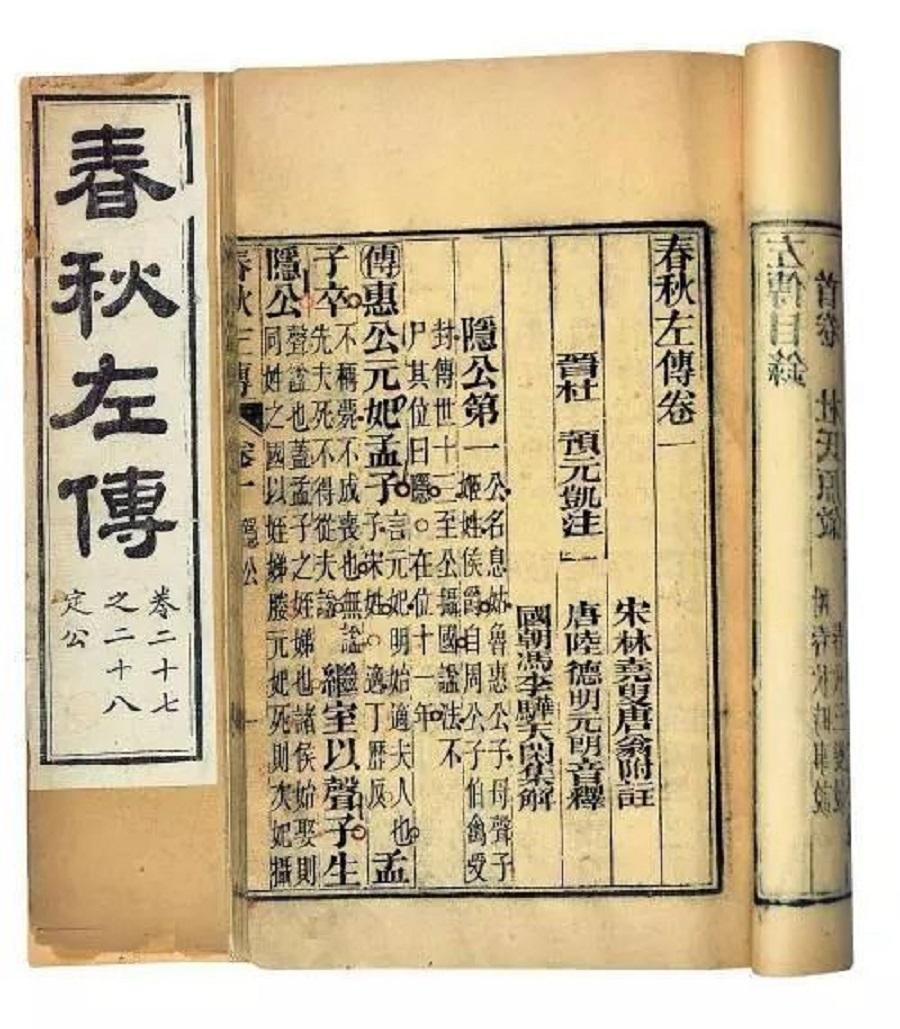 春秋左傳
卷二十七
之二十八
定公
春秋左傳卷一
宋林堯叟唐翁附註
晉杜 預元凱注
唐陸德明元朗音釋
國朝馮李驊天閑集解
隱公第一 公名息姑魯惠公子母聲子
姬姓侯爵自周公子伯禽受
封傳世十三至公攝國諡法不
尸其位曰隱。在位十一年
傳惠公元妃孟子 言元妃明始適夫人也
子宋姓。適丁歷反 孟
子卒 不稱薨不成喪也無諡
先夫死不得從夫諡 繼室以聲子生
隱公 聲諡也蓋孟子之姪娣也諸侯始娶則
同姓之國以姪娣媵元妃死則次妃攝
春秋左傳 卷一 隱公
左傳目錄
首卷 杜氏原敘